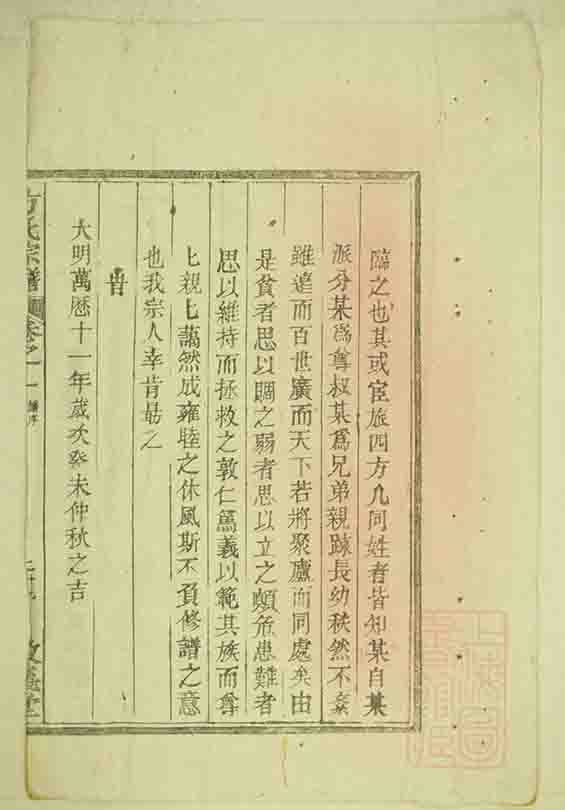 臨之也其或宦旅四方凡同姓者皆知某自某
派分某為尊叔某爲兄弟親踈長幼秩然不紊
雖遠而百世廣而天下若將聚廬而同處矣由
是貧者思以賙之弱者思以立之顛危患難者
思以維持而拯救之敦仁篤義以範其族而尊
匕親匕藹然成雍睦之休風斯不負修譜之意
也我宗人幸肯勗之
旹
大明萬曆十一年歲次癸未仲秋之吉
氏宗譜 卷之一 譜序